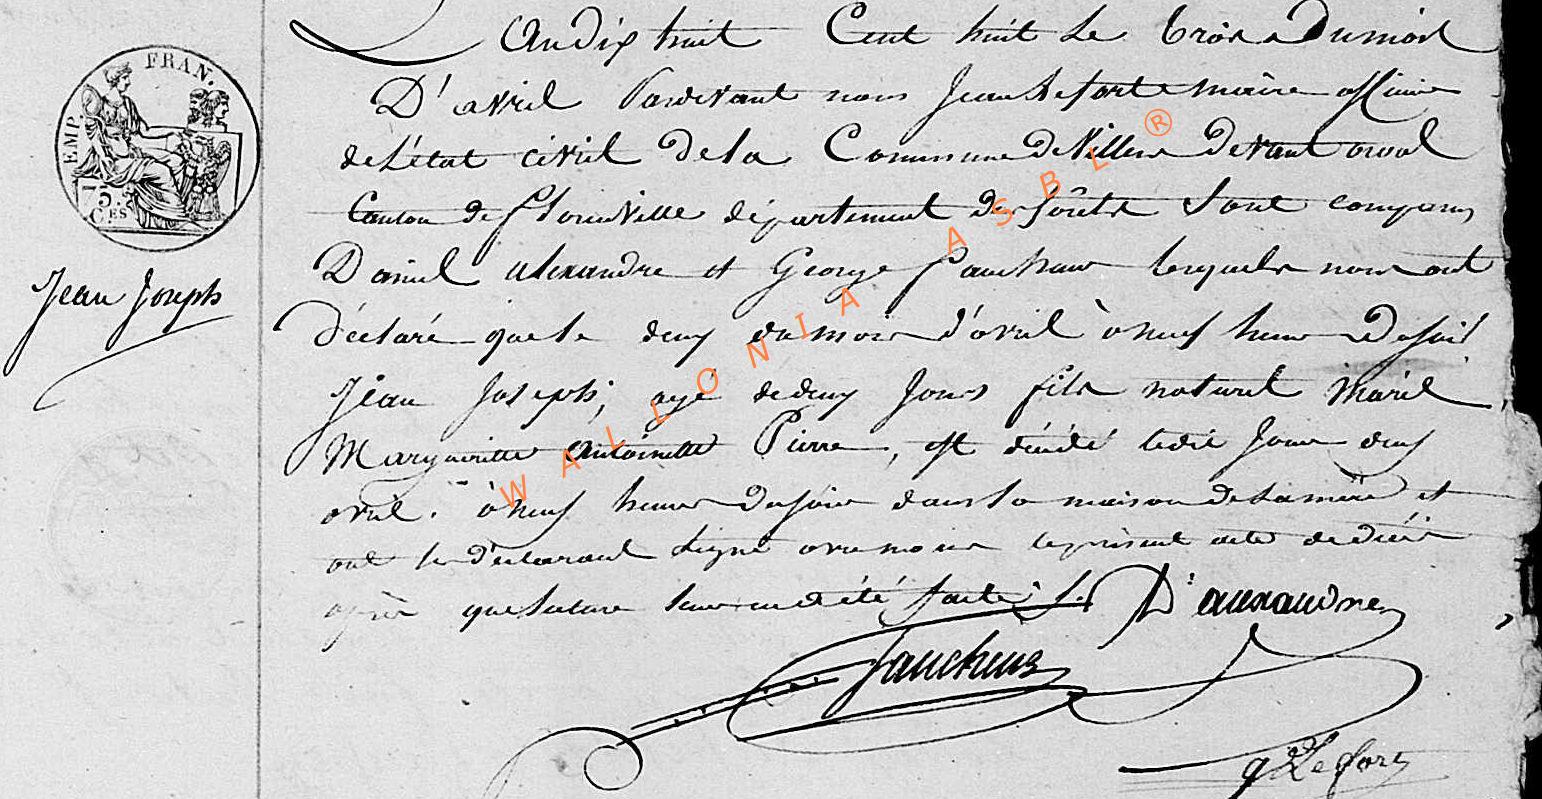 EMP. FRAN.
75.
C.ES
Jean Joseph
L'an dix huit Cent huit le trois du mois
D'avril Pardevant nous Jean Lefort maire officier
de l'état civil de la Commune de Villers devant orval
Canton de florenville département des forêts Sont comparus
Daniel alexandre et George faucheur lesquels nous ont
déclaré que le deux du mois d'avril à neuf heure du soir
Jean Joseph, agé de deux Jours fils naturel marie
Margueritte antoinette Pierre, est décédé ledit Jour deux
avril. à neuf heure du soir dans la maison de la mère et
ont les déclarant signé avec nous le présent acte de décès
après que lecture leur en a été faite
D. alexandre
faucheur
J Lefort
WALLONIA ASBL ®